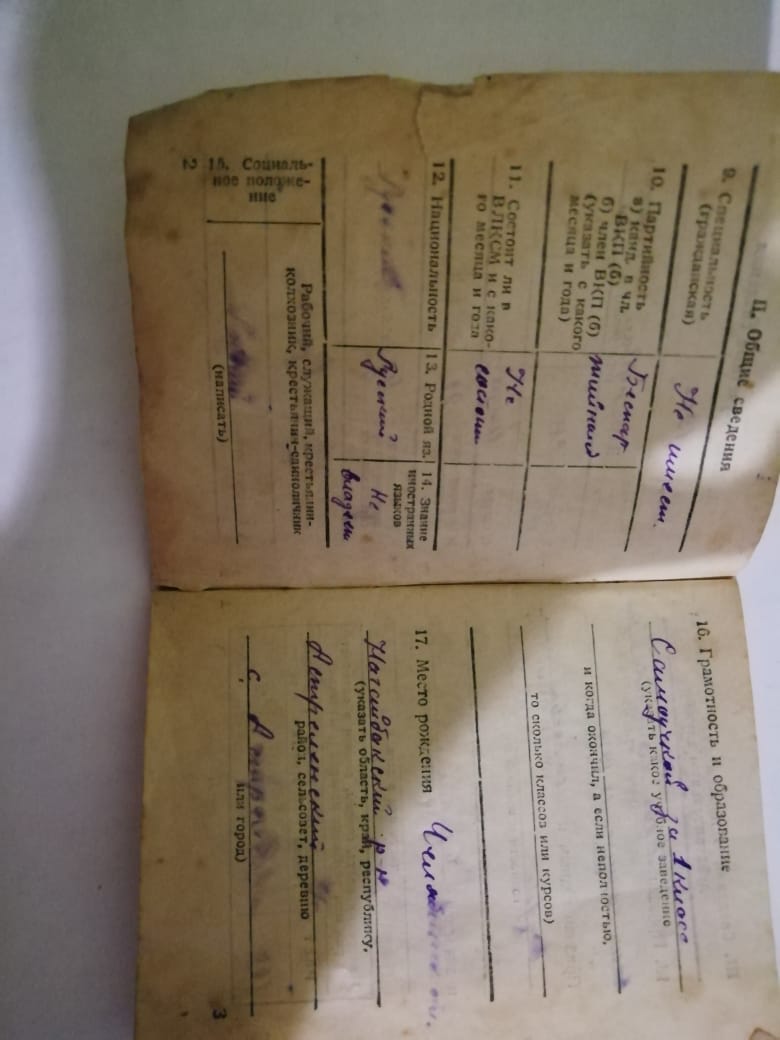 II. Общие сведения
9. Специальность
(гражданская)
Не имеет.
10. Партийность
а) канд. в чл.
ВКП (б)
б) член ВКП (б)
(указать с какого
месяца и года)
Беспар
тийный
11. Состоит ли в
ВЛКСМ и с како-
го месяца и года
Не
состоит
12. Национальность
Русский
13. Родной яз.
Русский
14. Знание
иностранных
языков
Не
владеет
15. Социаль-
ное положе-
ние
Рабочий, служащий, крестьянин-
колхозник, крестьянин-единоличник
(написать)
2
16. Грамотность и образование
Самоучкой за 1 класс
(указать какое учебное заведение
и когда окончил, а если неполностью,
то сколько классов или курсов)
17. Место рождения
Нагайбакский р-н
(указать область, край, республику,
район, сельсовет, деревню
с.
или город)
3